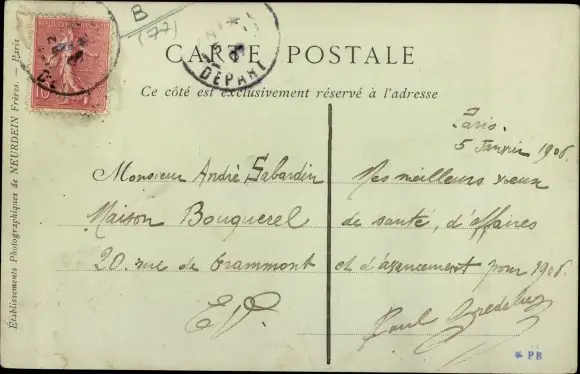 B
(77)
RÉPUBLIQUE FRANÇAISE
10
DÉPART
CARTE POSTALE
Ce côté est exclusivement réservé à l'adresse
Établissements Photographiques de NEURDEIN Frères. — Paris
Monsieur André Sabardin
Maison Bouquerel
20. rue de Grammont
E.V.
Paris.
5 Janvier 1906.
Mes meilleurs vœux
de santé, d'affaires
et d'avancement pour 1906.
Paul
* PB